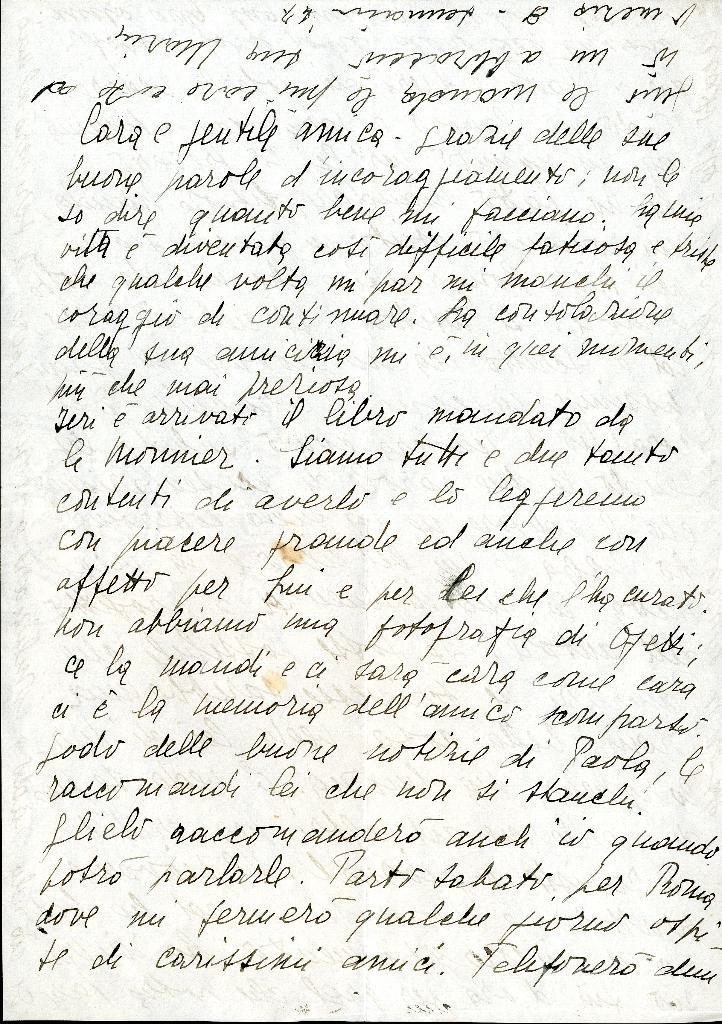 Cara e gentile amica - grazie delle sue
buone parole d'incoraggiamento; non le
so dire quanto bene mi facciano. La mia
vita è diventata così difficile faticosa e triste
che qualche volta mi par mi manchi il
coraggio di continuare. La consolazione
della sua amicizia mi è, in quei momenti,
più che mai preziosa
Ieri è arrivato il libro mandato da
le Monnier. Siamo tutti e due tanto
contenti di averlo e lo leggeremo
con piacere grande ed anche con
affetto per Lui e per Lei che l'ha curato.
Non abbiamo una fotografia di Ojetti;
ce la mandi e ci sarà cara come cara
ci è la memoria dell'amico scomparso.
Godo delle buone notizie di Paola, le
raccomandi lei che non si stanchi.
Glielo raccomanderò anch'io quando
potrò parlarle. Parto sabato per Roma
dove mi fermerò qualche giorno ospi
te di carissimi amici. Telefonerò
Gino le manda le più care cose
mi abbracci sua Maria
8 - gennaio '47